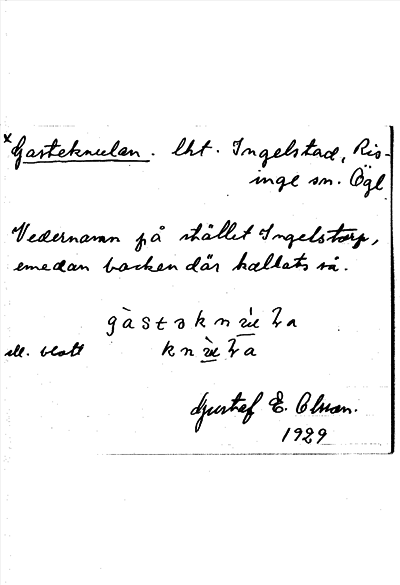 x Gasteknulan. lht. Ingelstad, Ris-
inge sn. Ögl.
Vedernamn på stället Ingelstorp,
emedan backen där kallats så.
gàstəknù̲ɽa
ell. blott knù̲ɽa
Gustaf E. Olsson.
1929